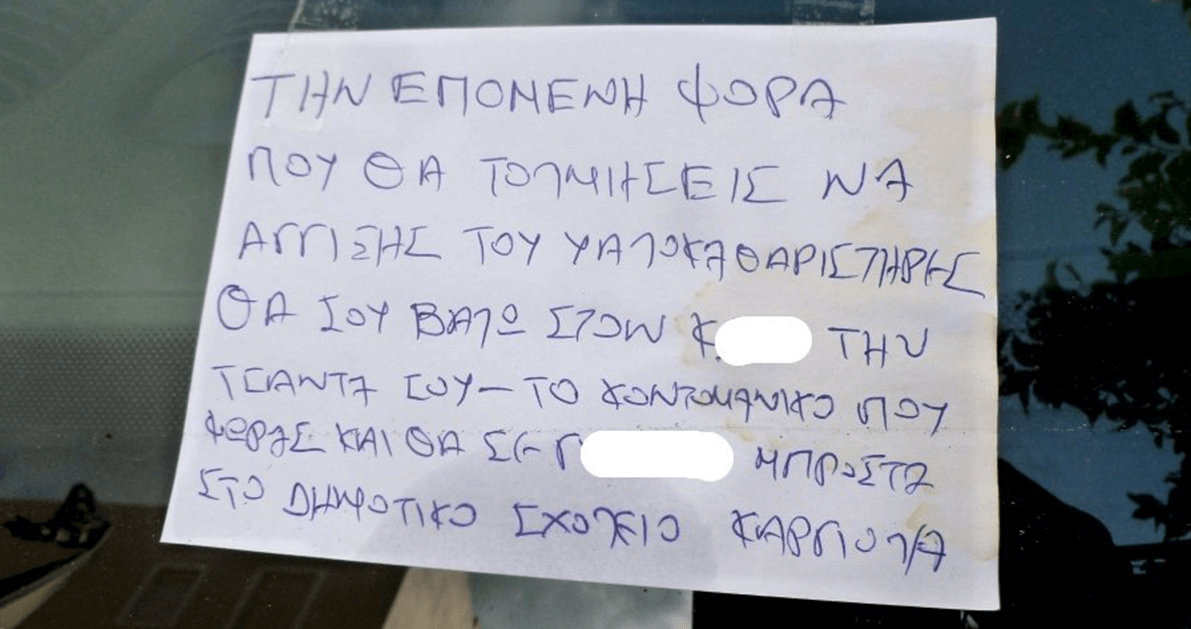 ΤΗΝ ΕΠΟΜΕΝΗ ΦΟΡΑ
ΠΟΥ ΘΑ ΤΟΛΜΗΣΕΙΣ ΝΑ
ΑΓΓΙΞΗΣ ΤΟΥ ΥΑΛΟΚΑΘΑΡΙΣΤΗΡΕΣ
ΘΑ ΣΟΥ ΒΑΛΩ ΣΤΟΝ Κ ΤΗΝ
ΤΣΑΝΤΑ ΣΟΥ – ΤΟ ΚΟΝΤΟΜΑΝΙΚΟ ΠΟΥ
ΦΟΡΑΣ ΚΑΙ ΘΑ ΣΕ Γ ΜΠΡΟΣΤΑ
ΣΤΟ ΔΗΜΟΤΙΚΟ ΣΧΟΛΕΙΟ ΚΑΡΓΙΟΛΑ